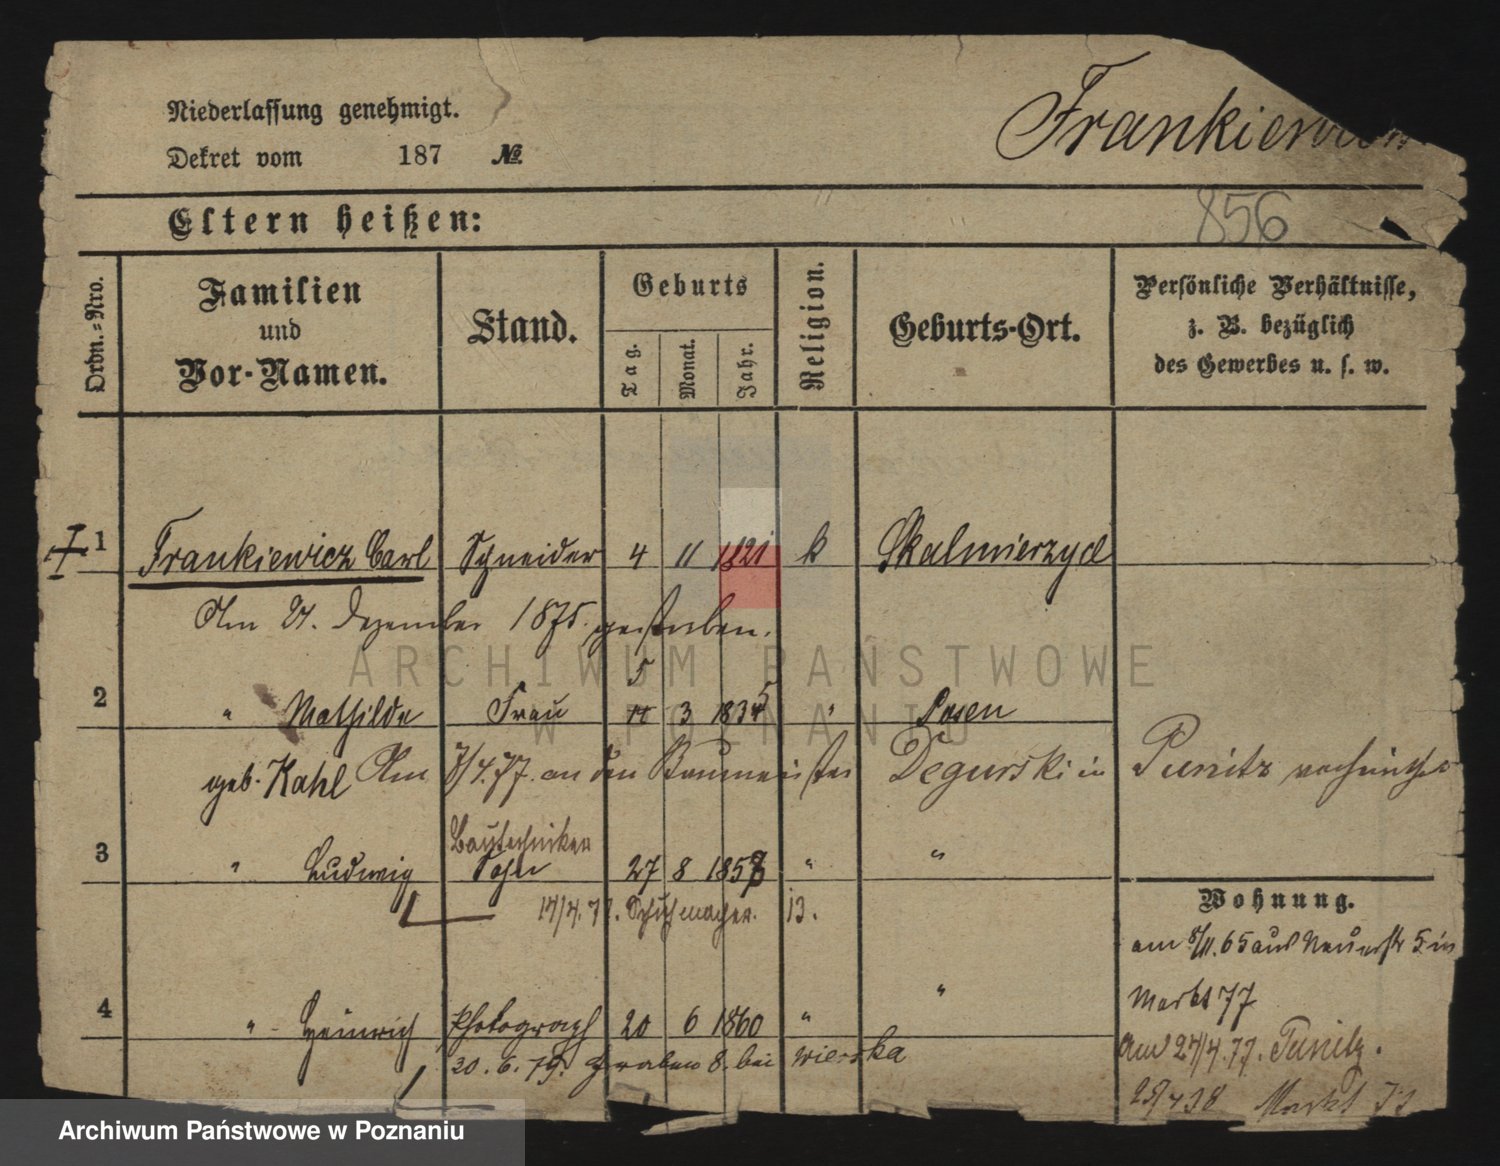 Niederlassung genehmigt.
Dekret vom 187 №
Frankiewicz
Eltern heißen:
856
Ordn.-Nro.
Familien
und
Vor-Namen.
Stand.
Geburts
Tag.
Monat.
Jahr.
Religion.
Geburts-Ort.
Persönliche Verhältnisse,
z. B. bezüglich
des Gewerbes u. s. w.
1 Frankiewicz Carl Schneider 4 11 1821 k Skalmierzyce
Am 27. Dezember 1875. gestorben.
5
2 " Mathilde Frau 11 3 1834 5 " Posen
geb. Kahl Am 7/4.77. an den Baumeister Degurski in Punitz
Bautechniker
3 " Ludwig Sohn 27 8 1858 " "
14/4.77. Schuhmacher. 13.
Wohnung.
am 8/11.65 aus Neuestr 5 in
Markt 77
4 " Heinrich Photograph 20 6 1860 " "
20.6.79. Graben 8. bei
Am 24/4.77. Punitz.
Markt
ARCHIWUM PAŃSTWOWE
W POZNANIU
Archiwum Państwowe w Poznaniu